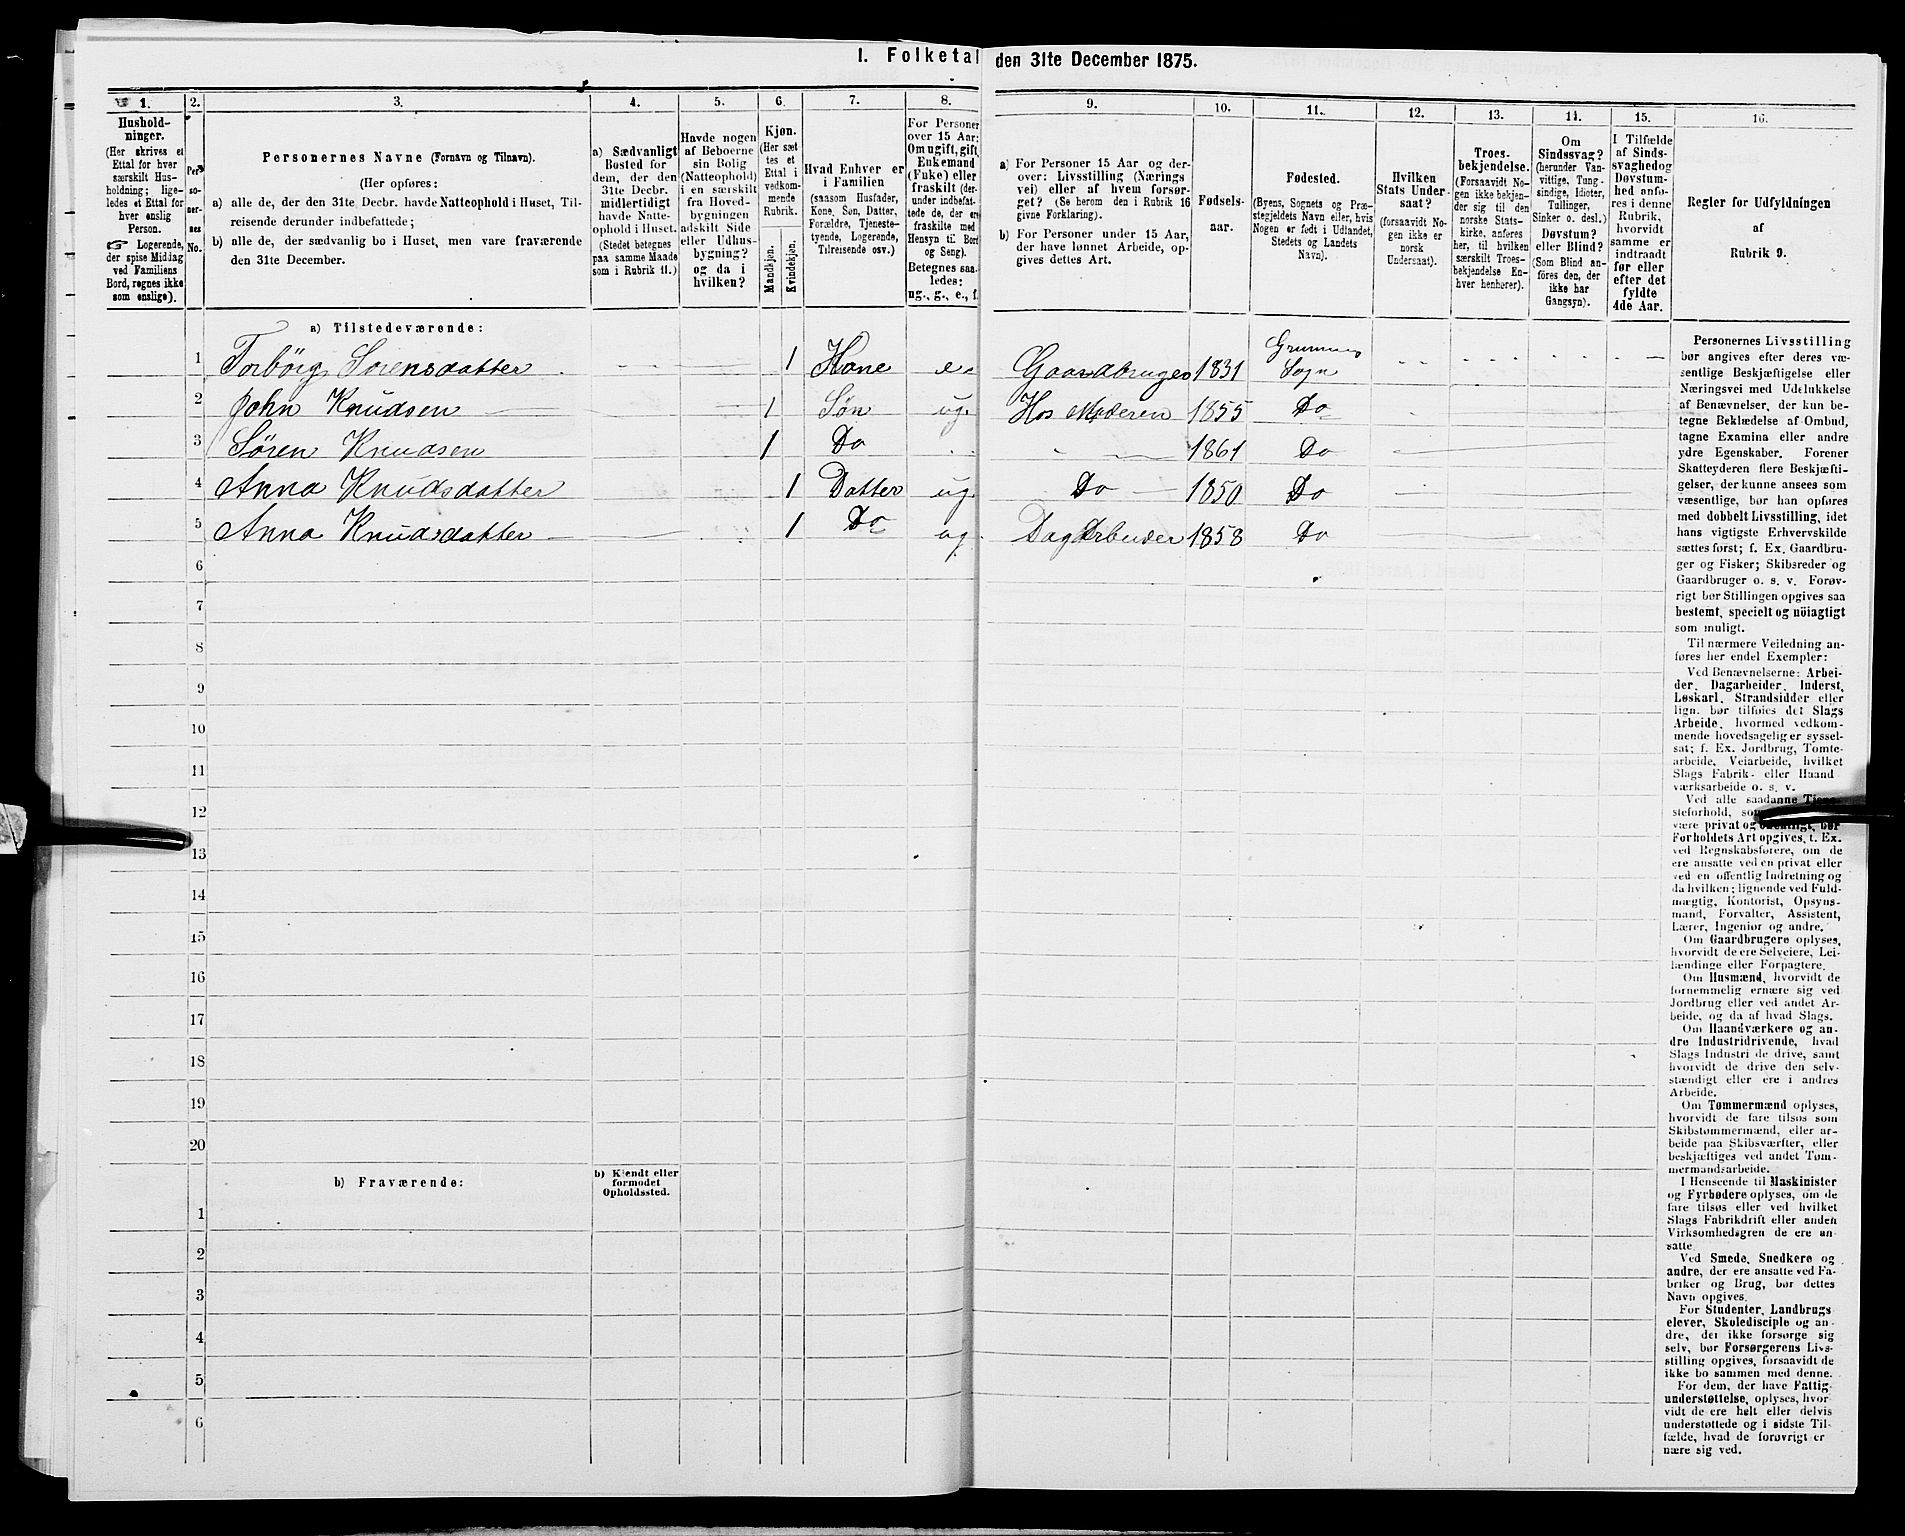 I. Folketal den 31te December 1875.
1.
2.
3.
4.
5.
6.
7.
8.
9.
10.
11.
12.
13.
14.
15.
16.
Hushold-
ninger.
(Her skrives et
Ettal for hver
særskilt Hus-
holdning; lige-
ledes et Ettal for
hver enslig
Person.
☞ Logerende,
der spise Middag
ved Familiens
Bord, regnes ikke
som enslige).
Per-
so-
ner-
nes
No.
Personernes Navne (Fornavn og Tilnavn).
(Her opføres:
a) alle de, der den 31te Decbr. havde Natteophold i Huset, Til-
reisende derunder indbefattede;
b) alle de, der sædvanlig bo i Huset, men vare fraværende
den 31te December.
a) Sædvanligt
Bosted for
dem, der den
31te Decbr.
midlertidigt
havde Natte-
ophold i Huset.
(Stedet betegnes
paa samme Maade
som i Rubrik 11.)
Havde nogen
af Beboerne
sin Bolig
(Natteophold)
i en særskilt
fra Hoved-
bygningen
adskilt Side
eller Udhus-
bygning?
og da i
hvilken?
Kjøn.
(Her sæt
tes et
Ettal i
vedkom-
mende
Rubrik.
Mandkjøn.
Kvindekjøn.
Hvad Enhver er
i Familien
(saasom Husfader,
Kone, Søn, Datter,
Forældre, Tjeneste-
tyende, Logerende,
Tilreisende osv.).
For Personer
over 15 Aar:
Om ugift, gift,
Enkemand
(Enke) eller
fraskilt (der-
under indbefat-
tede de, der ere
fraskilte med
Hensyn til Bord
og Seng).
Betegnes saa-
ledes:
ug., g., e., f.
a) For Personer 15 Aar og der-
over: Livsstilling (Nærings-
vei) eller af hvem forsør-
get? (Se herom den i Rubrik 16
givne Forklaring).
b) For Personer under 15 Aar,
der have lønnet Arbeide, op-
gives dettes Art.
Fødsels-
aar.
Fødested.
(Byens, Sognets og Præ-
stegjeldets Navn eller, hvis
Nogen er født i Udlandet,
Stedets og Landets
Navn).
Hvilken
Stats Under-
saat?
(forsaavidt No-
gen ikke er
norsk
Undersaat).
Troes-
bekjendelse.
(Forsaavidt No-
gen ikke bekjen-
der sig til den
norske Stats-
kirke, anføres
her, til hvilken
særskilt Troes-
bekjendelse En-
hver henhører).
Om
Sindssvag?
(herunder Van-
vittige, Tung-
sindige, Idioter,
Tullinger,
Sinker o. desl.)
Døvstum?
eller Blind?
(Som Blind an-
føres den, der
ikke har
Gangsyn).
I Tilfælde
af Sinds-
svaghed og
Døvstum-
hed anfø-
res i denne
Rubrik,
hvorvidt
samme er
indtraadt
før eller
efter det
fyldte
4de Aar.
Regler for Udfyldningen
af
Rubrik 9.
a) Tilstedeværende:
1 Torbörg Sörensdatter 1 Kone e. Gaardbruger 1831 Sogn
2 John Knudsen 1 Søn ug. Hos Moderen 1855 Do
3 Søren Knudsen 1 Do 1861 Do
4 Anna Knudsdatter 1 Datter ug. Do 1850 Do
5 Anna Knudsdatter 1 Do ug. Dag Arbeider 1858 Do
6
7
8
9
10
11
12
13
14
15
16
17
18
19
20
b) Fraværende:
b) Kjendt eller
formodet
Opholdssted.
1
2
3
4
5
6
Personernes Livsstilling
bør angives efter deres væ-
sentlige Beskjæftigelse eller
Næringsvei med Udelukkelse
af Benævnelser, der kun be-
tegne Beklædelse af Ombud,
tagne Examina eller andre
ydre Egenskaber. Forener
Skatteyderen flere Beskjæfti-
gelser, der kunne ansees som
væsentlige, bør han opføres
med dobbelt Livsstilling, idet
hans vigtigste Erhvervskilde
sættes først; f. Ex. Gaardbru-
ger og Fisker; Skibsreder og
Gaardbruger o. s. v. Forøv-
rigt bør Stillingen opgives saa
bestemt, specielt og nöiagtigt
som muligt.
Til nærmere Veiledning an-
føres her endel Exempler:
Ved Benævnelserne: Arbei-
der, Dagarbeider, Inderst,
Løskarl, Strandsidder eller
lign. bør tilføies det Slags
Arbeide, hvormed vedkom-
mende hovedsagelig er syssel-
sat; f. Ex. Jordbrug, Tomte-
arbeide, Veiarbeide, hvilket
Slags Fabrik- eller Haand
værksarbeide o. s. v.
Ved alle saadanne Tjene-
steforhold,
være privat og offentligt, bør
Forholdets Art opgives, f. Ex.
ved Regnskabsførere, om de
ere ansatte ved en privat eller
ved en offentlig Indretning og
da hvilken; lignende ved Fuld-
mægtig, Kontorist, Opsyns-
mand, Forvalter, Assistent,
Lærer, Ingeniør og andre.
Om Gaardbrugere oplyses,
hvorvidt de ere Selveiere, Lei-
lændinge eller Forpagtere.
Om Husmænd, hvorvidt de
fornemmelig ernære sig ved
Jordbrug eller ved andet Ar-
beide, og da af hvad Slags.
Om Haandværkere og an-
dre Industridrivende, hvad
Slags Industri de drive, samt
hvorvidt de drive den selv-
stændigt eller ere i andres
Arbeide.
Om Tømmermænd oplyses,
hvorvidt de fare tilsøs som
Skibstømmermænd, eller ar-
beide paa Skibsværfter, eller
beskjæftiges ved andet Tøm-
mermandsarbeide.
I Henseende til Maskinister
og Fyrbødere oplyses, om de
fare tilsøs eller ved hvilket
Slags Fabrikdrift eller anden
Virksomhedsgren de ere an-
satte.
Ved Smede, Snedkere og
andre, der ere ansatte ved Fa-
briker og Brug, bør dettes
Navn opgives.
For Studenter, Landbrugs
elever, Skoledisciple og an-
dre, der ikke forsørge sig
selv, bør Forsørgerens Livs-
stilling opgives, forsaavidt de
ikke bo sammen med denne.
For dem, der have Fattig-
understøttelse, oplyses, hvor-
vidt de ere helt eller delvis
understøttede og i sidste Til-
fælde, hvad de forøvrigt er-
nære sig ved.